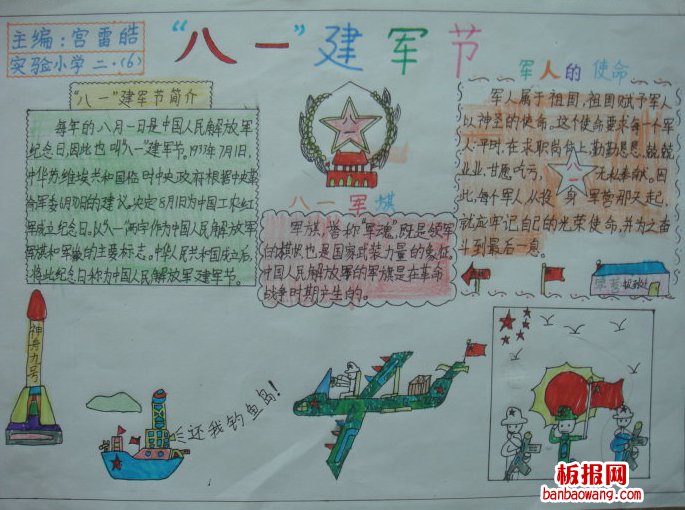 主编:宫雷皓
实验小学 二·(6)
“八一”建军节
“八一”建军节简介
每年的八月一日是中国人民解放军
纪念日,因此也叫“八一”建军节。1933年7月1日,
中华苏维埃共和国临时中央政府根据中央革
命军委6月30日的建议。决定8月1日为中国工农红
军成立纪念日。以“八一”两字作为中国人民解放军
军旗和军徽的主要标志。中华人民共和国成立后,
将此纪念日称为中国人民解放军建军节。
八一
八一军旗
军旗,誉称“军魂”,既是领军
任的模帜也是国家武装力量的象征。
中国人民解放军的军旗是在革命
战争时期产生的。
军人的使命
军人属于祖国,祖国赋予军人
以神圣的使命。这个使命要求每个军
人:平时,在求职岗位上,勤勤恳恳、兢兢
业业,甘愿吃亏,无私奉献。因
此,每个军人,从投身军营那天起,
就应牢记自己的光荣使命,并为之奋
斗到最后一息。
神舟九号
还我钓鱼岛!
板报网
banbaowang.com